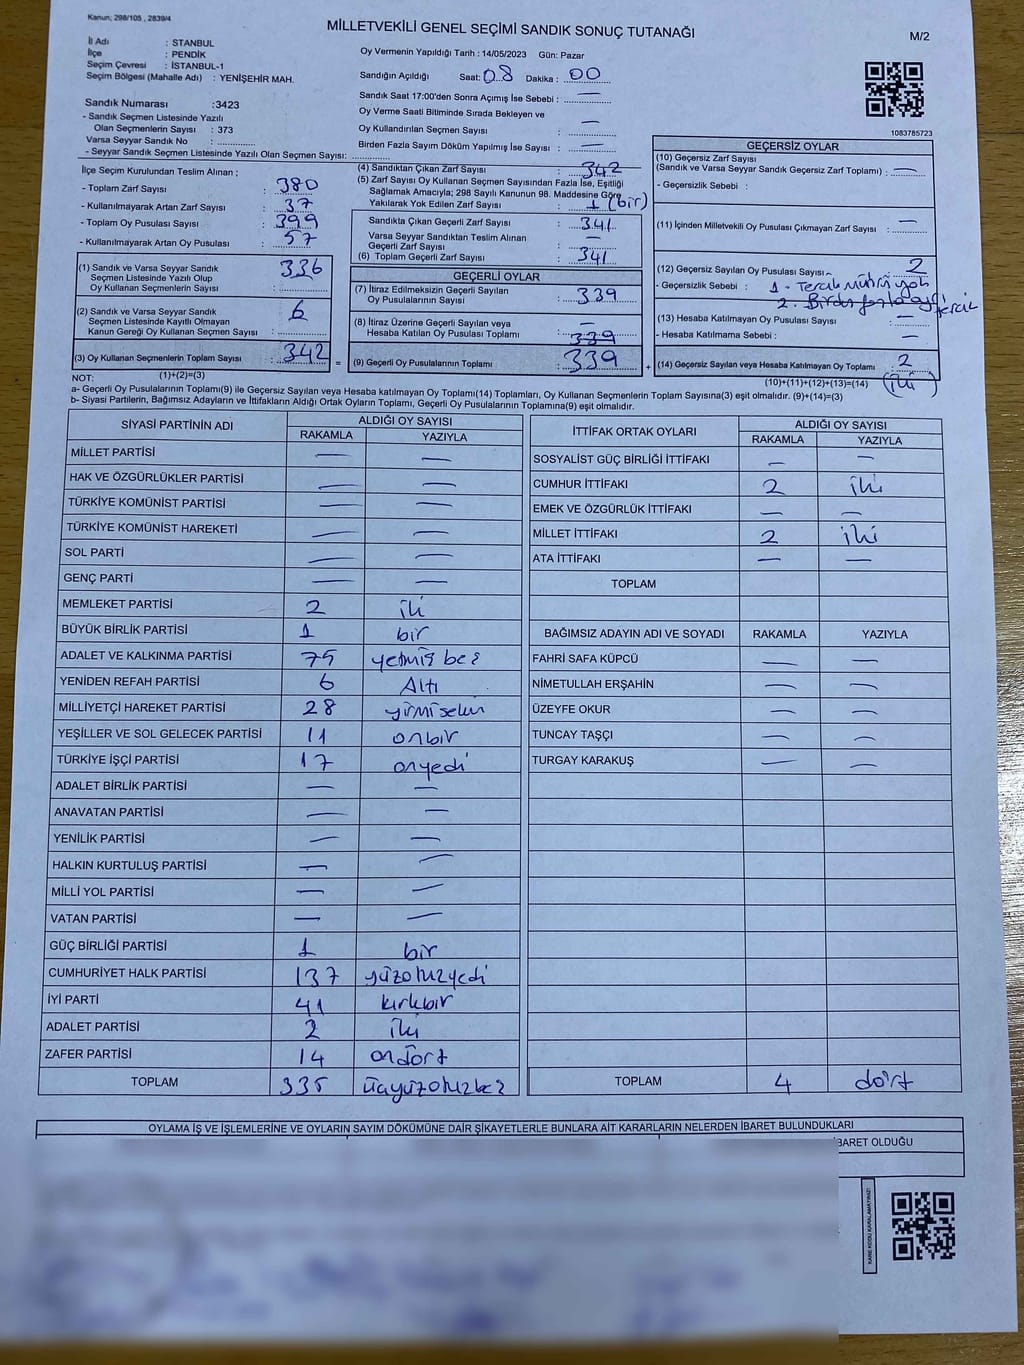 Kanun; 298/105 , 2839/4
MİLLETVEKİLİ GENEL SEÇİMİ SANDIK SONUÇ TUTANAĞI
M/2
İl Adı : STANBUL
İlçe : PENDİK
Seçim Çevresi : İSTANBUL-1
Seçim Bölgesi (Mahalle Adı) : YENİŞEHİR MAH.
Sandık Numarası :3423
- Sandık Seçmen Listesinde Yazılı
Olan Seçmenlerin Sayısı : 373
Varsa Seyyar Sandık No :
- Seyyar Sandık Seçmen Listesinde Yazılı Olan Seçmen Sayısı:
Oy Vermenin Yapıldığı Tarih : 14/05/2023 Gün: Pazar
Sandığın Açıldığı Saat: 08 Dakika : 00
Sandık Saat 17:00'den Sonra Açımış İse Sebebi : —
Oy Verme Saati Bitiminde Sırada Bekleyen ve
Oy Kullandırılan Seçmen Sayısı : —
Birden Fazla Sayım Döküm Yapılmış İse Sayısı : —
1083785723
İlçe Seçim Kurulundan Teslim Alınan ;
- Toplam Zarf Sayısı : 380
- Kullanılmayarak Artan Zarf Sayısı : 37
- Toplam Oy Pusulası Sayısı : 399
- Kullanılmayarak Artan Oy Pusulası : 57
(1) Sandık ve Varsa Seyyar Sandık
Seçmen Listesinde Yazılı Olup
Oy Kullanan Seçmenlerin Sayısı : 336
(2) Sandık ve Varsa Seyyar Sandık
Seçmen Listesinde Kayıtlı Olmayan
Kanun Gereği Oy Kullanan Seçmen Sayısı : 6
(3) Oy Kullanan Seçmenlerin Toplam Sayısı : 342 =
(1)+(2)=(3)
(4) Sandıktan Çıkan Zarf Sayısı : 342
(5) Zarf Sayısı Oy Kullanan Seçmen Sayısından Fazla İse, Eşitliği
Sağlamak Amacıyla; 298 Sayılı Kanunun 98. Maddesine Göre
Yakılarak Yok Edilen Zarf Sayısı : 1 (bir)
Sandıkta Çıkan Geçerli Zarf Sayısı : 341
Varsa Seyyar Sandıktan Teslim Alınan
Geçerli Zarf Sayısı : —
(6) Toplam Geçerli Zarf Sayısı : 341
GEÇERLİ OYLAR
(7) İtiraz Edilmeksizin Geçerli Sayılan
Oy Pusulalarının Sayısı : 339
(8) İtiraz Üzerine Geçerli Sayılan veya
Hesaba Katılan Oy Pusulası Toplamı : — 339
(9) Geçerli Oy Pusulalarının Toplamı : 339 +
GEÇERSİZ OYLAR
(10) Geçersiz Zarf Sayısı
(Sandık ve Varsa Seyyar Sandık Geçersiz Zarf Toplamı) : —
- Geçersizlik Sebebi :
(11) İçinden Milletvekili Oy Pusulası Çıkmayan Zarf Sayısı : —
(12) Geçersiz Sayılan Oy Pusulası Sayısı : 2
- Geçersizlik Sebebi : 1 - Tercih mührü yok
2. Birden fazla tercih
(13) Hesaba Katılmayan Oy Pusulası Sayısı : —
- Hesaba Katılmama Sebebi : —
(14) Geçersiz Sayılan veya Hesaba Katılmayan Oy Toplamı : 2
(10)+(11)+(12)+(13)=(14) (iki)
NOT:
a- Geçerli Oy Pusulalarının Toplamı(9) ile Geçersiz Sayılan veya Hesaba katılmayan Oy Toplamı(14) Toplamları, Oy Kullanan Seçmenlerin Toplam Sayısına(3) eşit olmalıdır. (9)+(14)=(3)
b- Siyasi Partilerin, Bağımsız Adayların ve İttifakların Aldığı Ortak Oyların Toplamı, Geçerli Oy Pusulalarının Toplamına(9) eşit olmalıdır.
SİYASİ PARTİNİN ADI ALDIĞI OY SAYISI
RAKAMLA YAZIYLA
MİLLET PARTİSİ — —
HAK VE ÖZGÜRLÜKLER PARTİSİ — —
TÜRKİYE KOMÜNİST PARTİSİ — —
TÜRKİYE KOMÜNİST HAREKETİ — —
SOL PARTİ — —
GENÇ PARTİ — —
MEMLEKET PARTİSİ 2 iki
BÜYÜK BİRLİK PARTİSİ 1 bir
ADALET VE KALKINMA PARTİSİ 75 yetmiş beş
YENİDEN REFAH PARTİSİ 6 Altı
MİLLİYETÇİ HAREKET PARTİSİ 28 yirmisekiz
YEŞİLLER VE SOL GELECEK PARTİSİ 11 onbir
TÜRKİYE İŞÇİ PARTİSİ 17 onyedi
ADALET BİRLİK PARTİSİ — —
ANAVATAN PARTİSİ — —
YENİLİK PARTİSİ — —
HALKIN KURTULUŞ PARTİSİ — —
MİLLİ YOL PARTİSİ — —
VATAN PARTİSİ — —
GÜÇ BİRLİĞİ PARTİSİ 1 bir
CUMHURİYET HALK PARTİSİ 137 yüzotuzyedi
İYİ PARTİ 41 kırkbir
ADALET PARTİSİ 2 iki
ZAFER PARTİSİ 14 ondört
TOPLAM 335 üçyüzotuzbeş
İTTİFAK ORTAK OYLARI ALDIĞI OY SAYISI
RAKAMLA YAZIYLA
SOSYALİST GÜÇ BİRLİĞİ İTTİFAKI — —
CUMHUR İTTİFAKI 2 iki
EMEK VE ÖZGÜRLÜK İTTİFAKI — —
MİLLET İTTİFAKI 2 iki
ATA İTTİFAKI — —
TOPLAM
BAĞIMSIZ ADAYIN ADI VE SOYADI RAKAMLA YAZIYLA
FAHRİ SAFA KÜPCÜ — —
NİMETULLAH ERŞAHİN — —
ÜZEYFE OKUR — —
TUNCAY TAŞÇI — —
TURGAY KARAKUŞ — —
TOPLAM 4 dört
OYLAMA İŞ VE İŞLEMLERİNE VE OYLARIN SAYIM DÖKÜMÜNE DAİR ŞİKAYETLERLE BUNLARA AİT KARARLARIN NELERDEN İBARET BULUNDUKLARI
İBARET OLDUĞU
KARE KODU KARALAMAYINIZ!